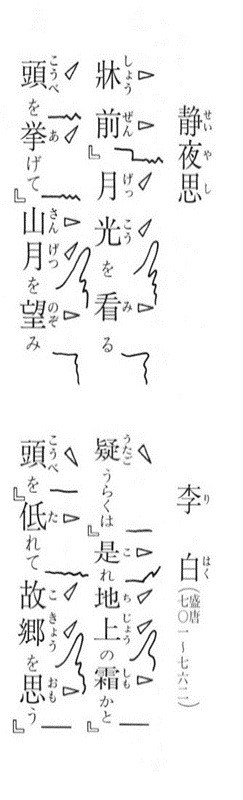 静夜思
せいやし
李白(盛唐 七〇一~七六二)
りはく
牀前『月光を看る
しょうぜんげっこうみ
疑うらくは『是れ地上の霜かと『
うたごこちじょうしも
頭を挙げて『山月を望み
こうべあさんげつのぞ
頭を『低れて故郷を思う『
こうべたこきょうおも